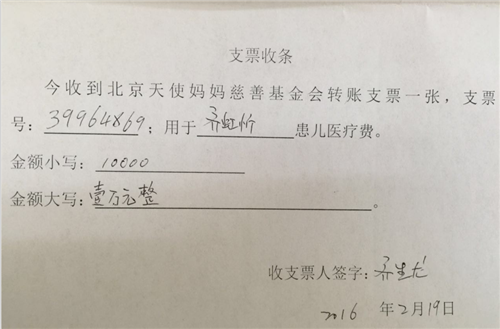 支票收条
今收到北京天使妈妈慈善基金会转账支票一张，支票
号：39964869；用于齐虹忻患儿医疗费。
金额小写：10000
金额大写：壹万元整。
收支票人签字：齐生龙
2016年2月19日